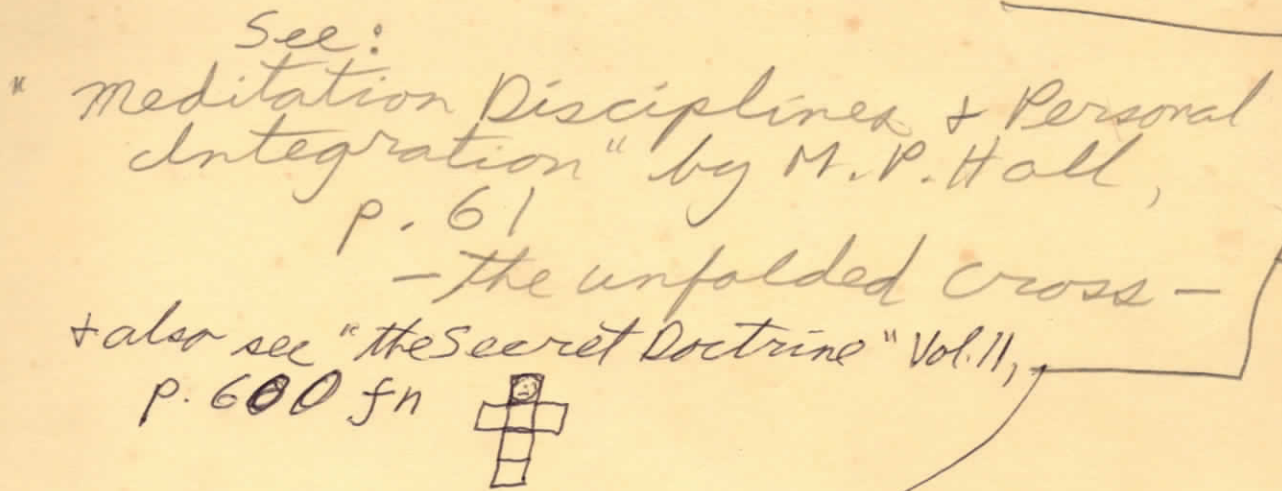 See:
"Meditation Disciplines & Personal
Integration" by M.P. Hall,
p. 61
- the unfolded cross -
& also see "the Secret Doctrine" Vol. II,
p. 600 fn